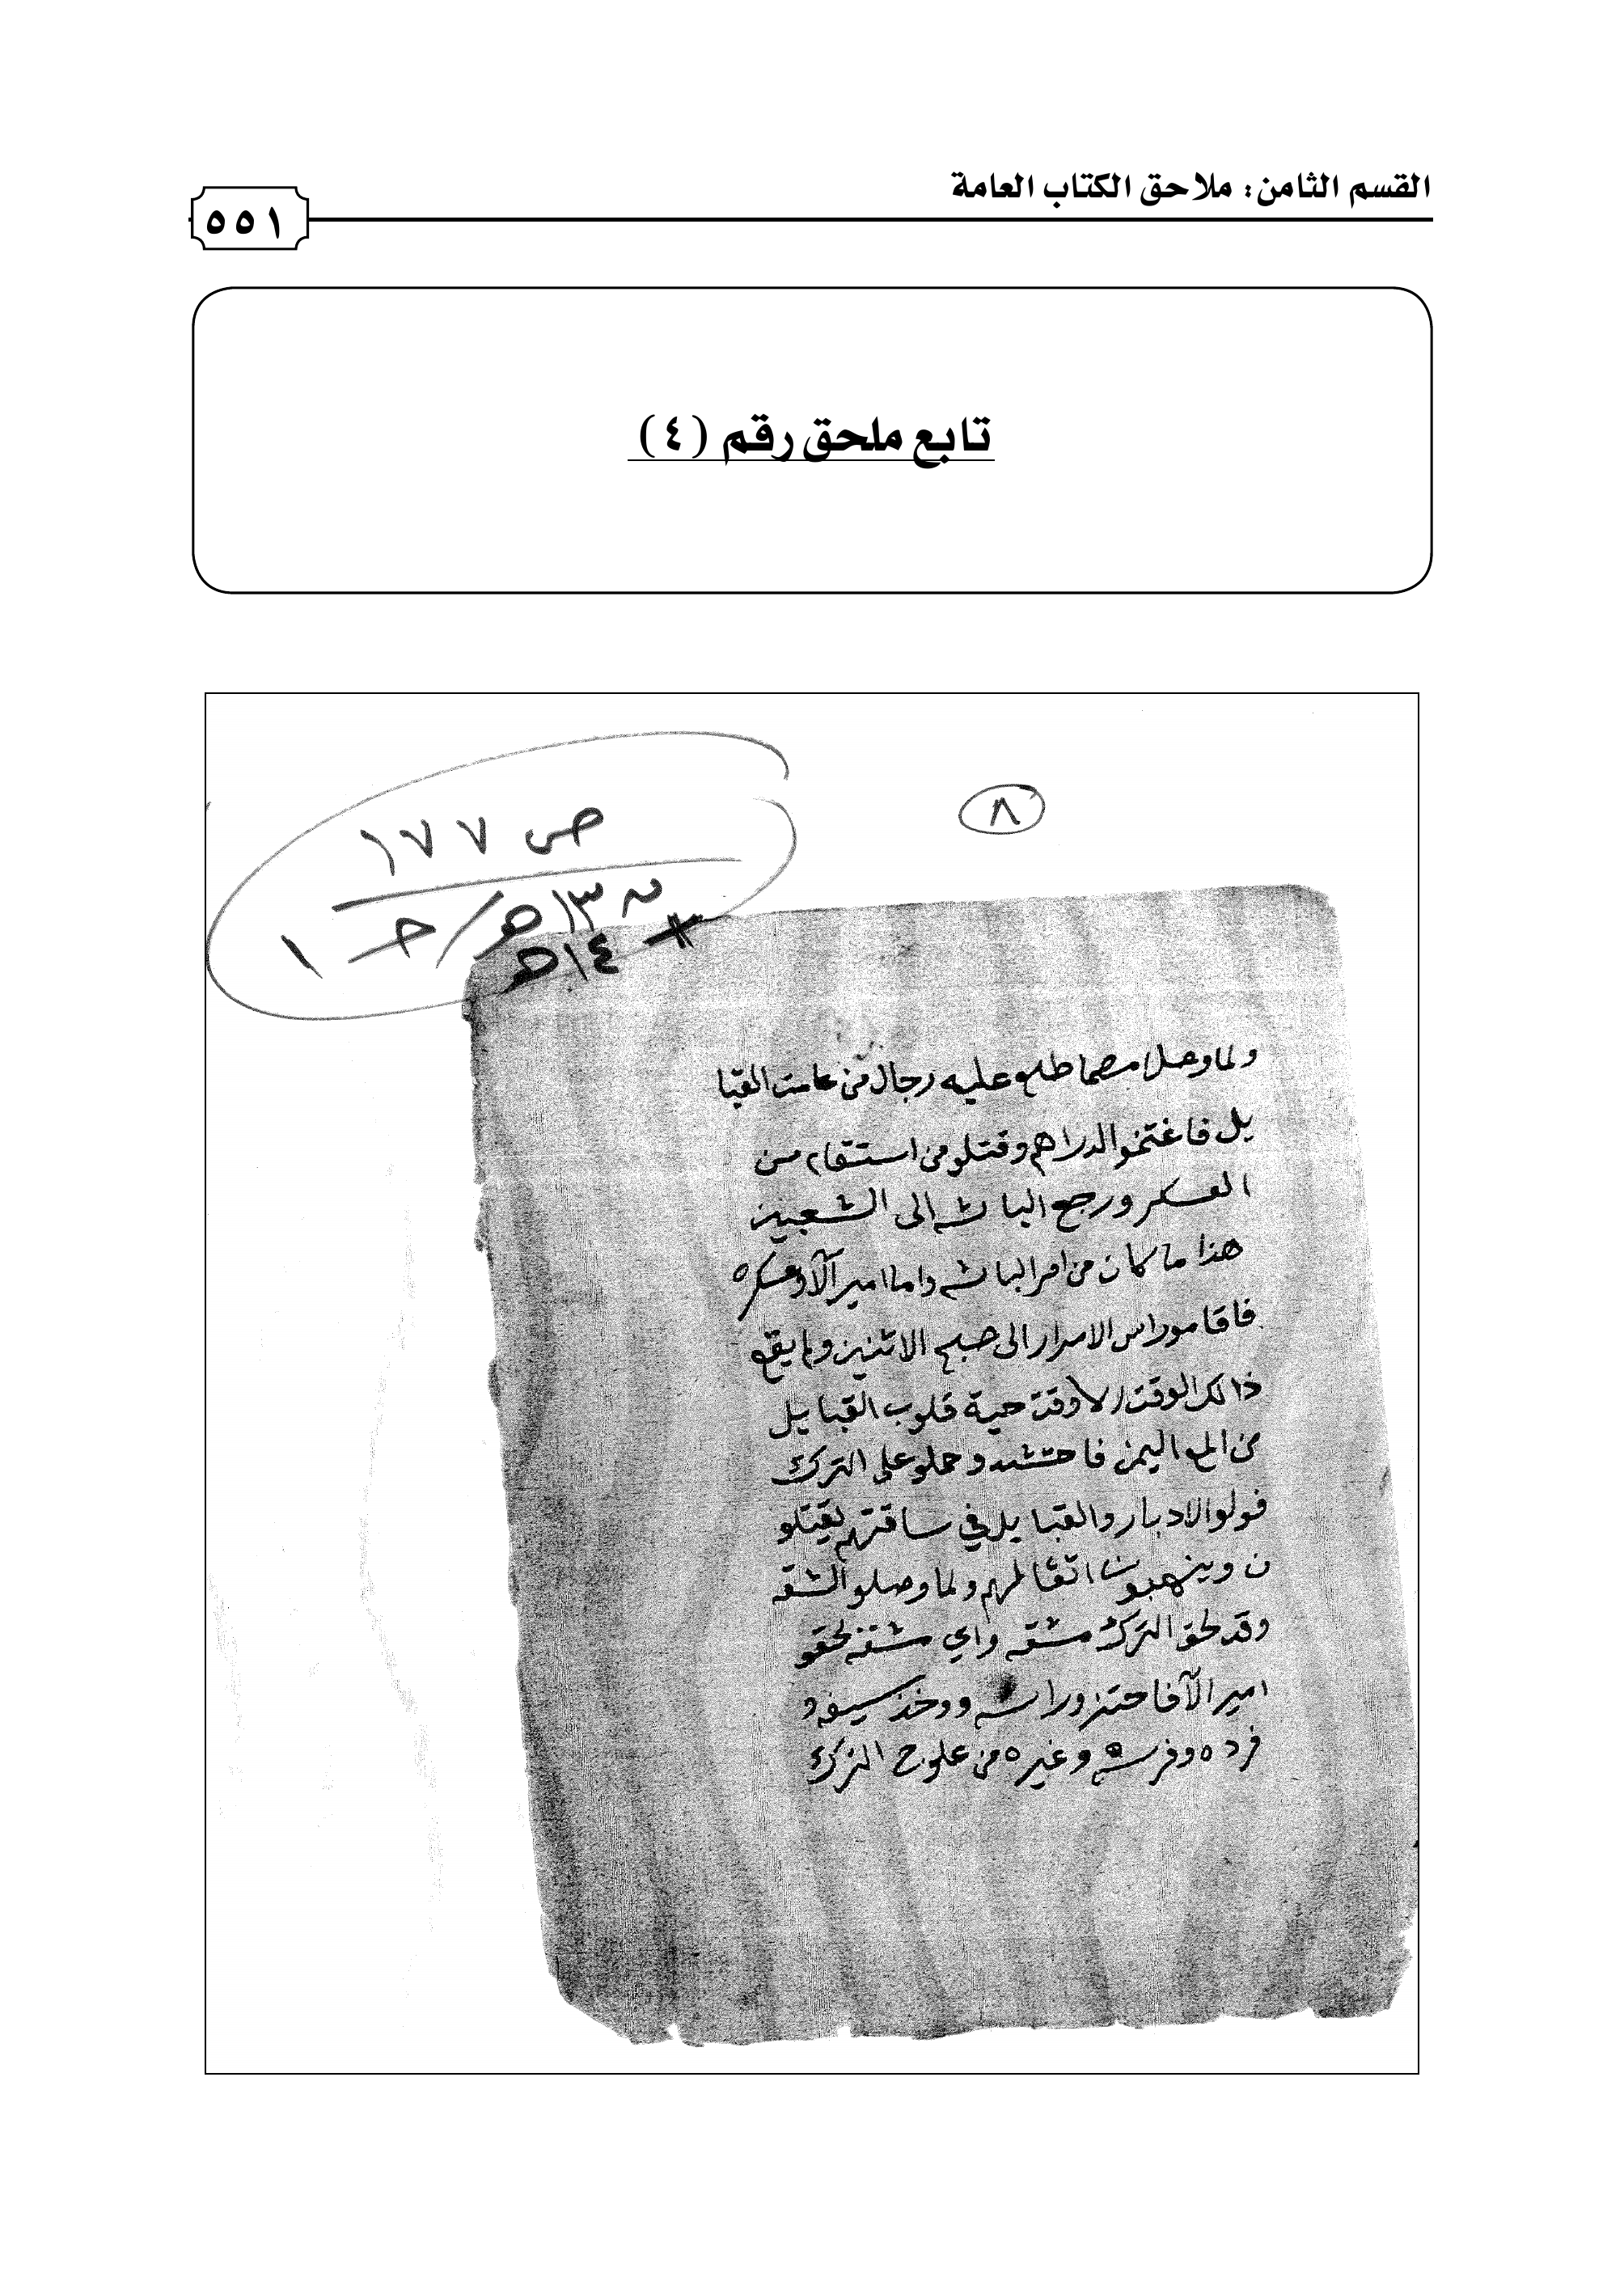 القسم الثامن: ملاحق الكتاب العامة
٥٥١
تابع ملحق رقم (٤)
٨
ص ١٧٧
١٣هـ/حـ ١
١٤هـ
ولما وصل طلع عليه رجال من عامت القبا
يل فاغتنمو الدراهم وقتلو من استقام من
العسكر ورجع الباشه الى الشعبين
هذا ما كان من امر الباشه واما امير الآلا وعسكره
فاقامو راس الامرار الى صبح الاثنين ولم يقع
ذالك الوقت الا وقد حية قلوب القبايل
من المع اليمن فاحتشد وحملو على الترك
فولو الادبار والقبايل في ساقتهم يقتلو
ن وينهبون اثقالهم ولما وصلو الشقه
وقد لحق الترك مشقه واي مشقه لحقو
امير الآلا فاحتز وراسه ووخذ سيفه و
فرده وفرسه وغيره من علوج الترك